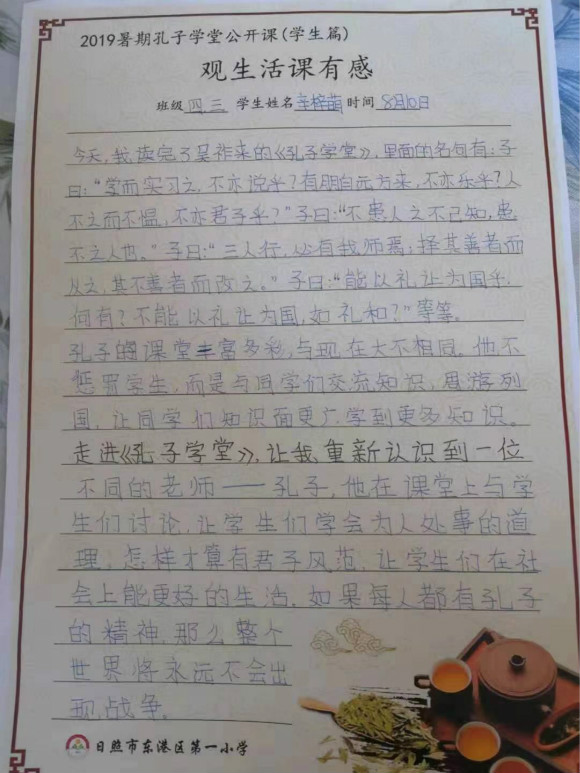 2019暑期孔子学堂公开课(学生篇)
观生活课有感
班级 四三 学生姓名 辛梓萌 时间 8月10日
今天,我读完了吴祚来的《孔子学堂》,里面的名句有:子
曰:“学而实习之,不亦说乎?有朋自远方来,不亦乐乎?人
不之而不愠,不亦君子乎?”子曰:“不患人之不己知,患
不之人也。”子曰:“三人行,必有我师焉;择其善者而
从之,其不善者而改之。”子曰:“能以礼让为国乎,
何有?不能以礼让为国,如礼和?”等等。
孔子的课堂丰富多彩,与现在大不相同。他不
惩罚学生,而是与同学们交流知识,周游列
国,让同学们知识面更广学到更多知识。
走进《孔子学堂》,让我重新认识到一位
不同的老师——孔子,他在课堂上与学
生们讨论,让学生们学会为人处事的道
理,怎样才算有君子风范,让学生们在社
会上能更好的生活。如果每人都有孔子
的精神,那么整个
世界将永远不会出
现战争。
日照市东港区第一小学